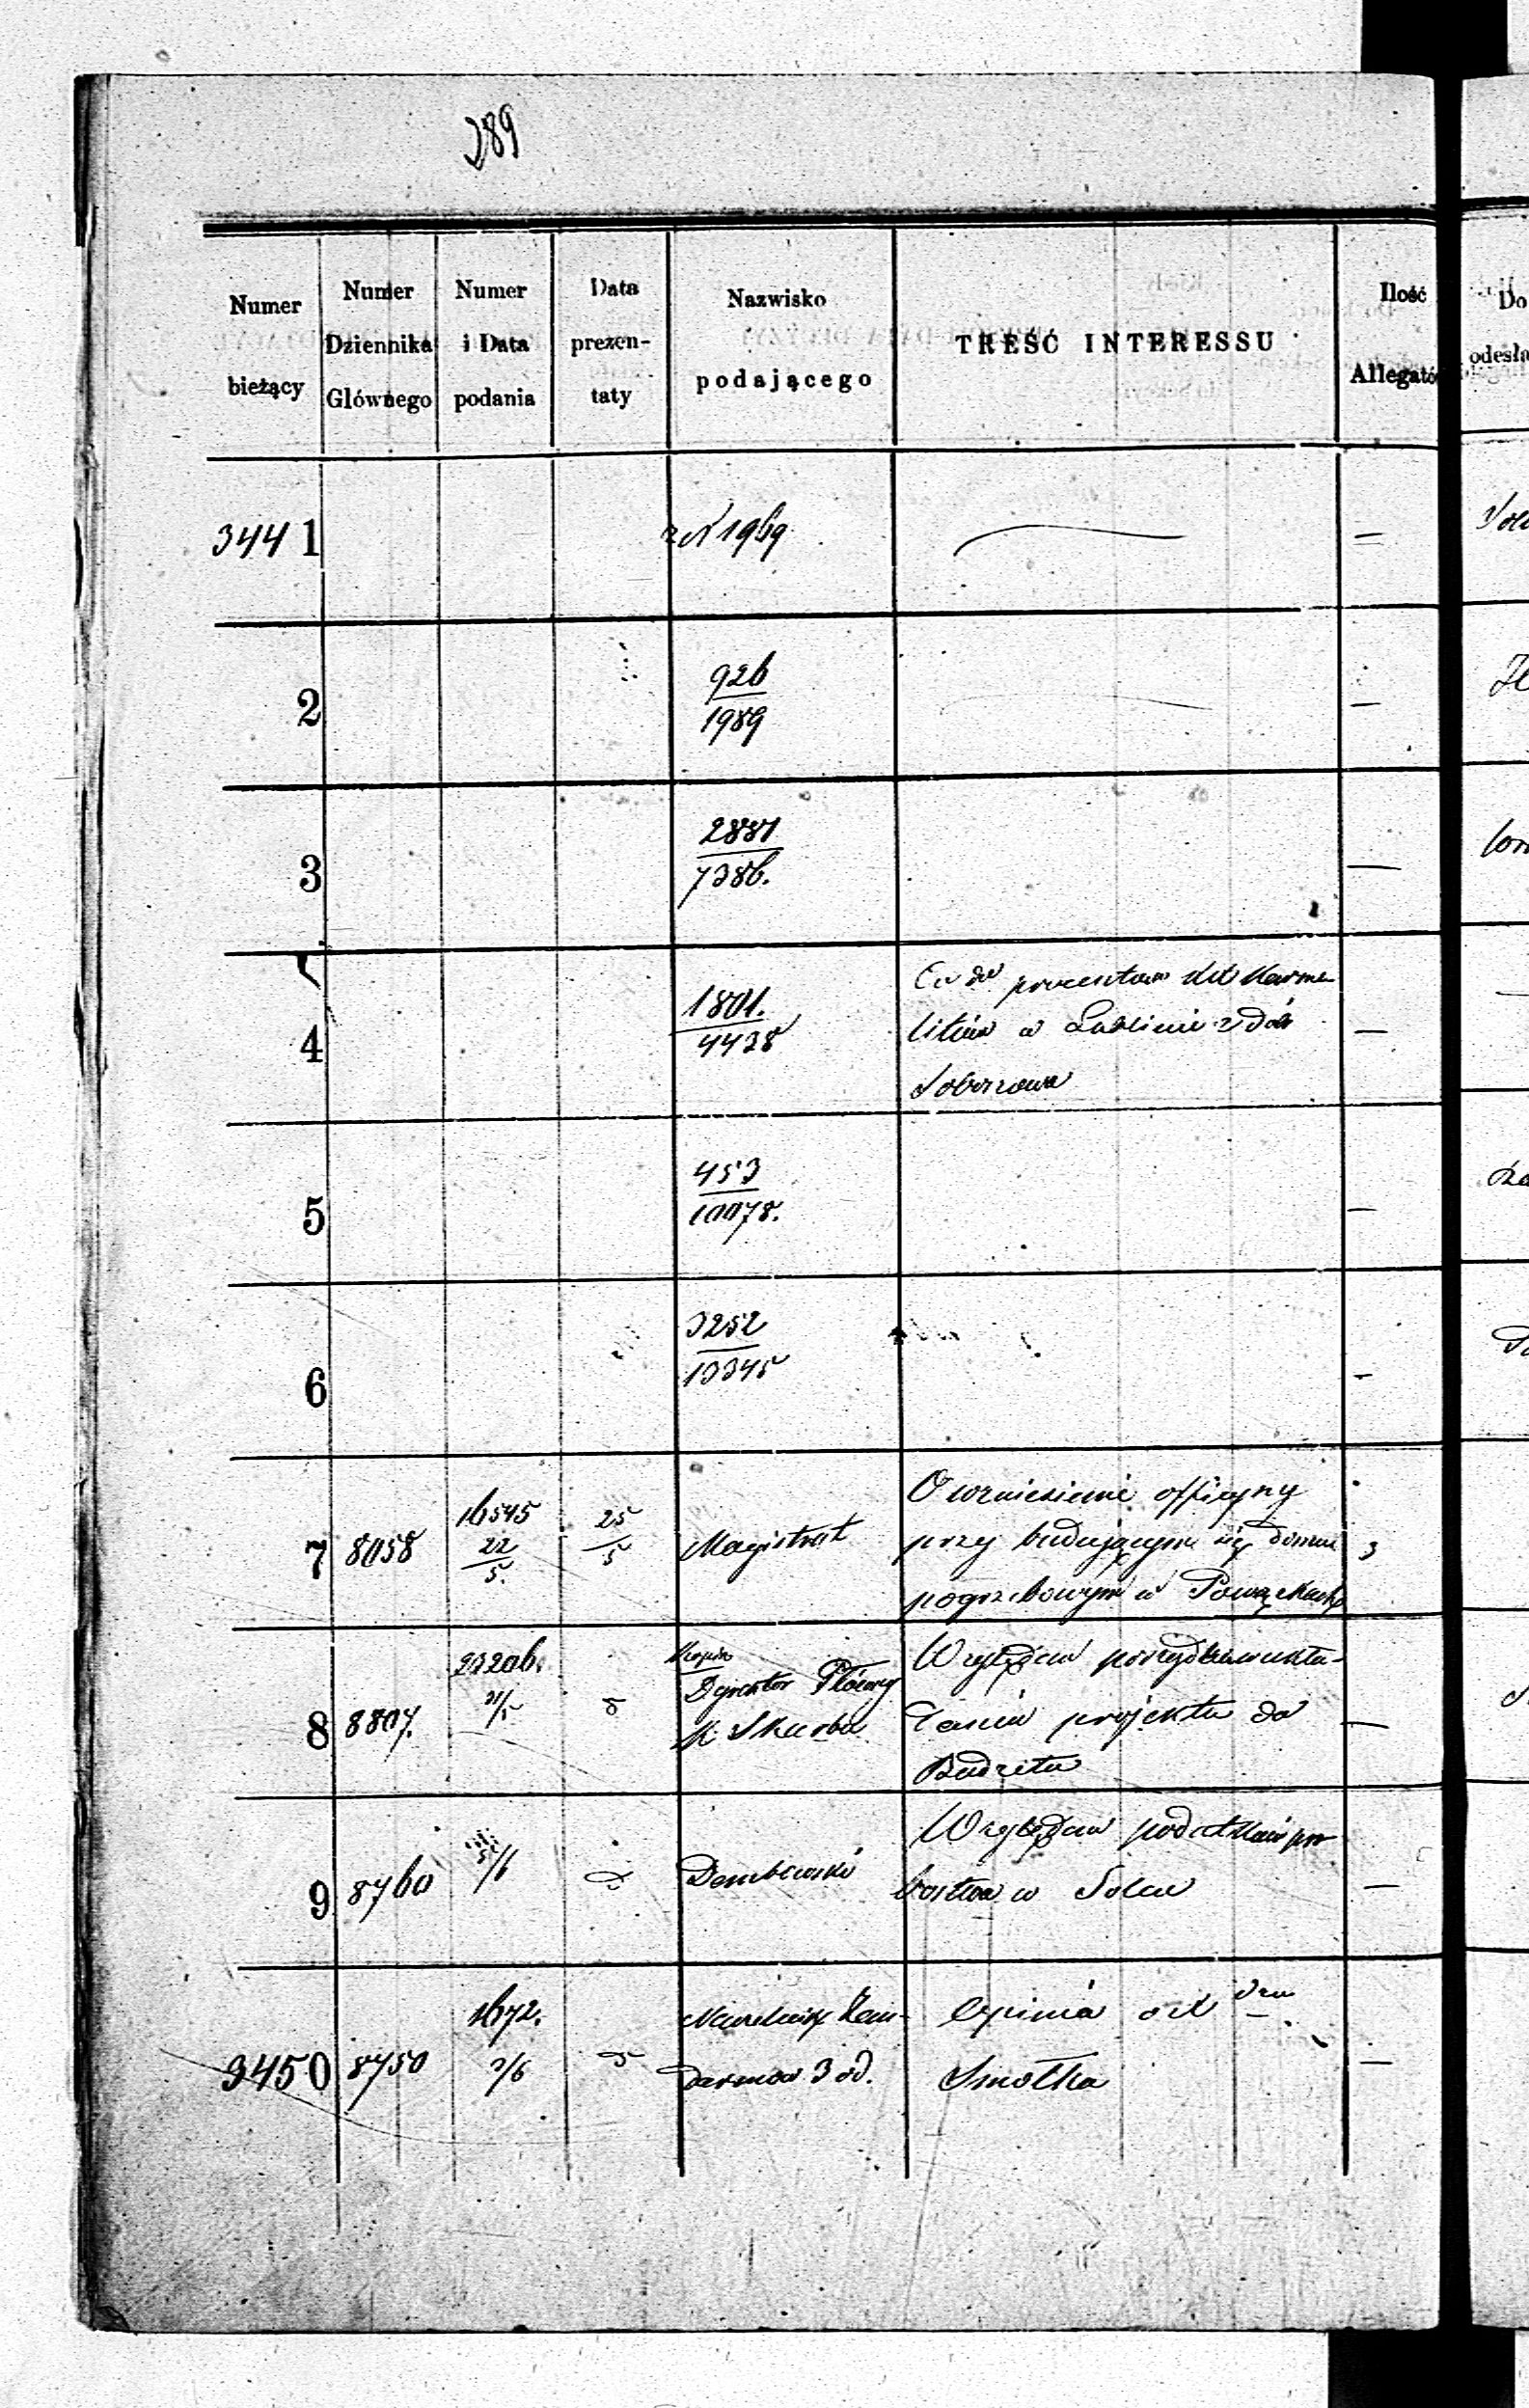 289
Numer bieżący
Numer Dziennika Głównego
Numer i Data podania
Data prezentaty
Nazwisko podającego
TREŚĆ INTERESSU
Ilość Allegató
Do odesła
3441 1969
2 926/1989
3 2881/7386.
4 1801./4438
Co do procentów XX Karme
litów w Lublinie z dóbr
5 453/10078.
6 3252/13345
7 8058 16545 22/5. 25/5 Magistrat
O wzniesienie officyny
przy budującym się domu 3
pogrzebowym w Powązkach
8 8807. 23206. 31/5
Dyrektor Główny
K. Skarbu
Względem porządku ukła-
dania projektu do
Budżetu
9 8760 /6 Dembowski
Względem podatków pro
bostwa w Solcu
3450 8750 1672. 2/6
Naczelnik Żan-
darmów 3 od.
Opinia o X
Smołka